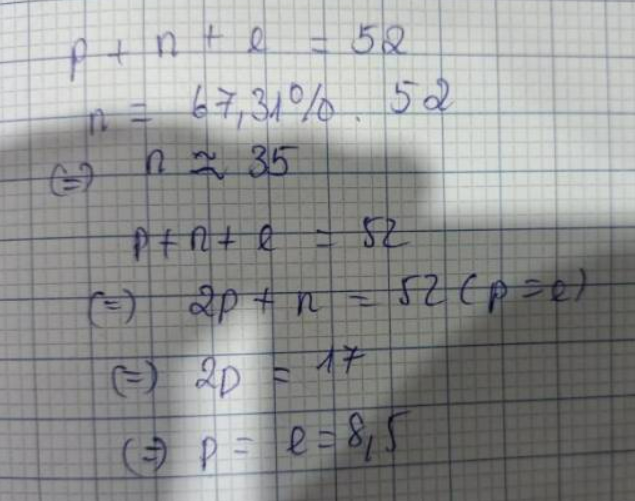 p + n + e = 52
n = 67,31% . 52
(=) n ≈ 35
p + n + e = 52
(=) 2p + n = 52 (p = e)
(=) 2p = 17
(=) p = e = 8,5